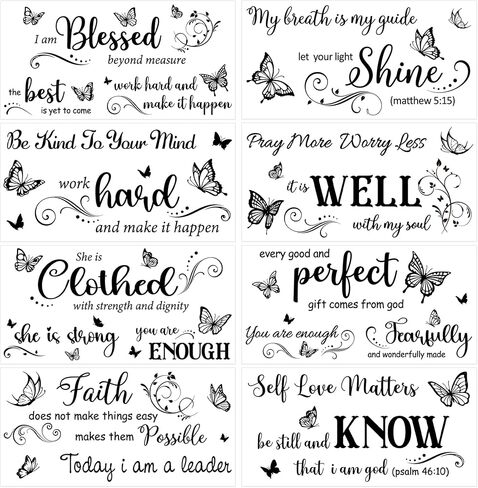 I am Blessed
beyond measure
the best
is yet to come
work hard and
make it happen
My breath is my guide
let your light
Shine
(matthew 5:15)
Be Kind To Your Mind
work hard
and make it happen
Pray More Worry Less
it is WELL
with my soul
She is
Clothed
with strength and dignity
she is strong
you are
ENOUGH
every good and
perfect
gift comes from god
You are enough
Fearfully
and wonderfully made
Faith
does not make things easy
makes them Possible
Today i am a leader
Self Love Matters
be still and KNOW
that i am god (psalm 46:10)